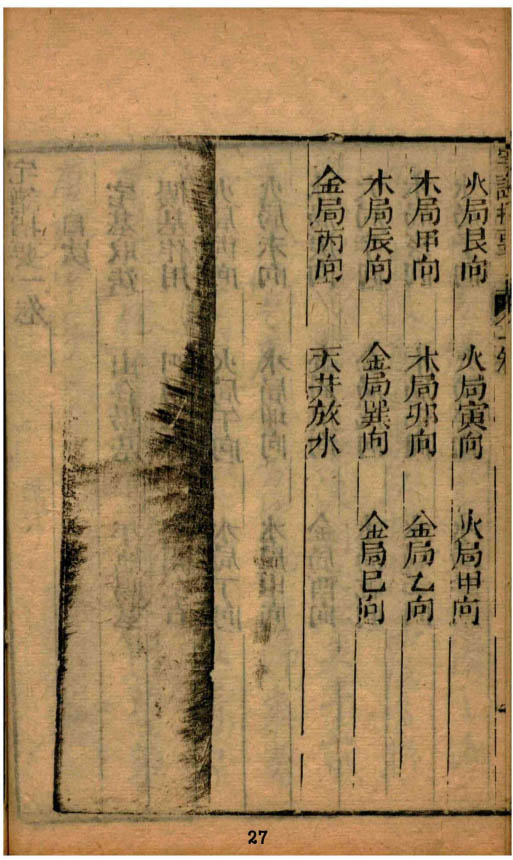 火局艮向　火局寅向　火局甲向
木局甲向　木局卯向　金局乙向
木局辰向　金局巽向　金局巳向
金局丙向　天井放水
27